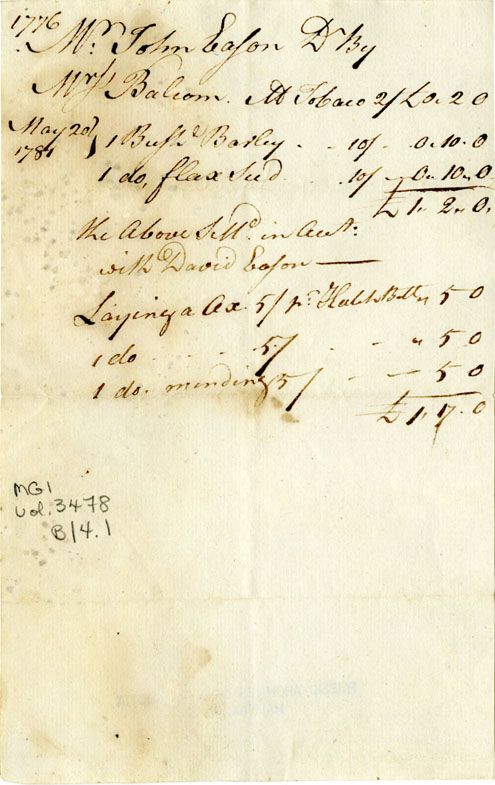 1776
Mr. John Eason Dr By
Mrs Balcom. lb Tobaco 2/ £0. 2 0
May 20th 1781 } 1 Bushl Barley - - 10/ - 0.. 10. 0
1 do, flax seed 10/ - 0.. 10.. 0
£ 1.. 2.. 0.
the Above Settd. in Acct.
with David Eason —
Laying a Ax 5/ pr. " 5 0
1 do - - - 5/ - - " 5 0
1 do. mending 5/ - - 5 0
£ 1. 17. 0
MG1
Vol. 3478
B/4.1